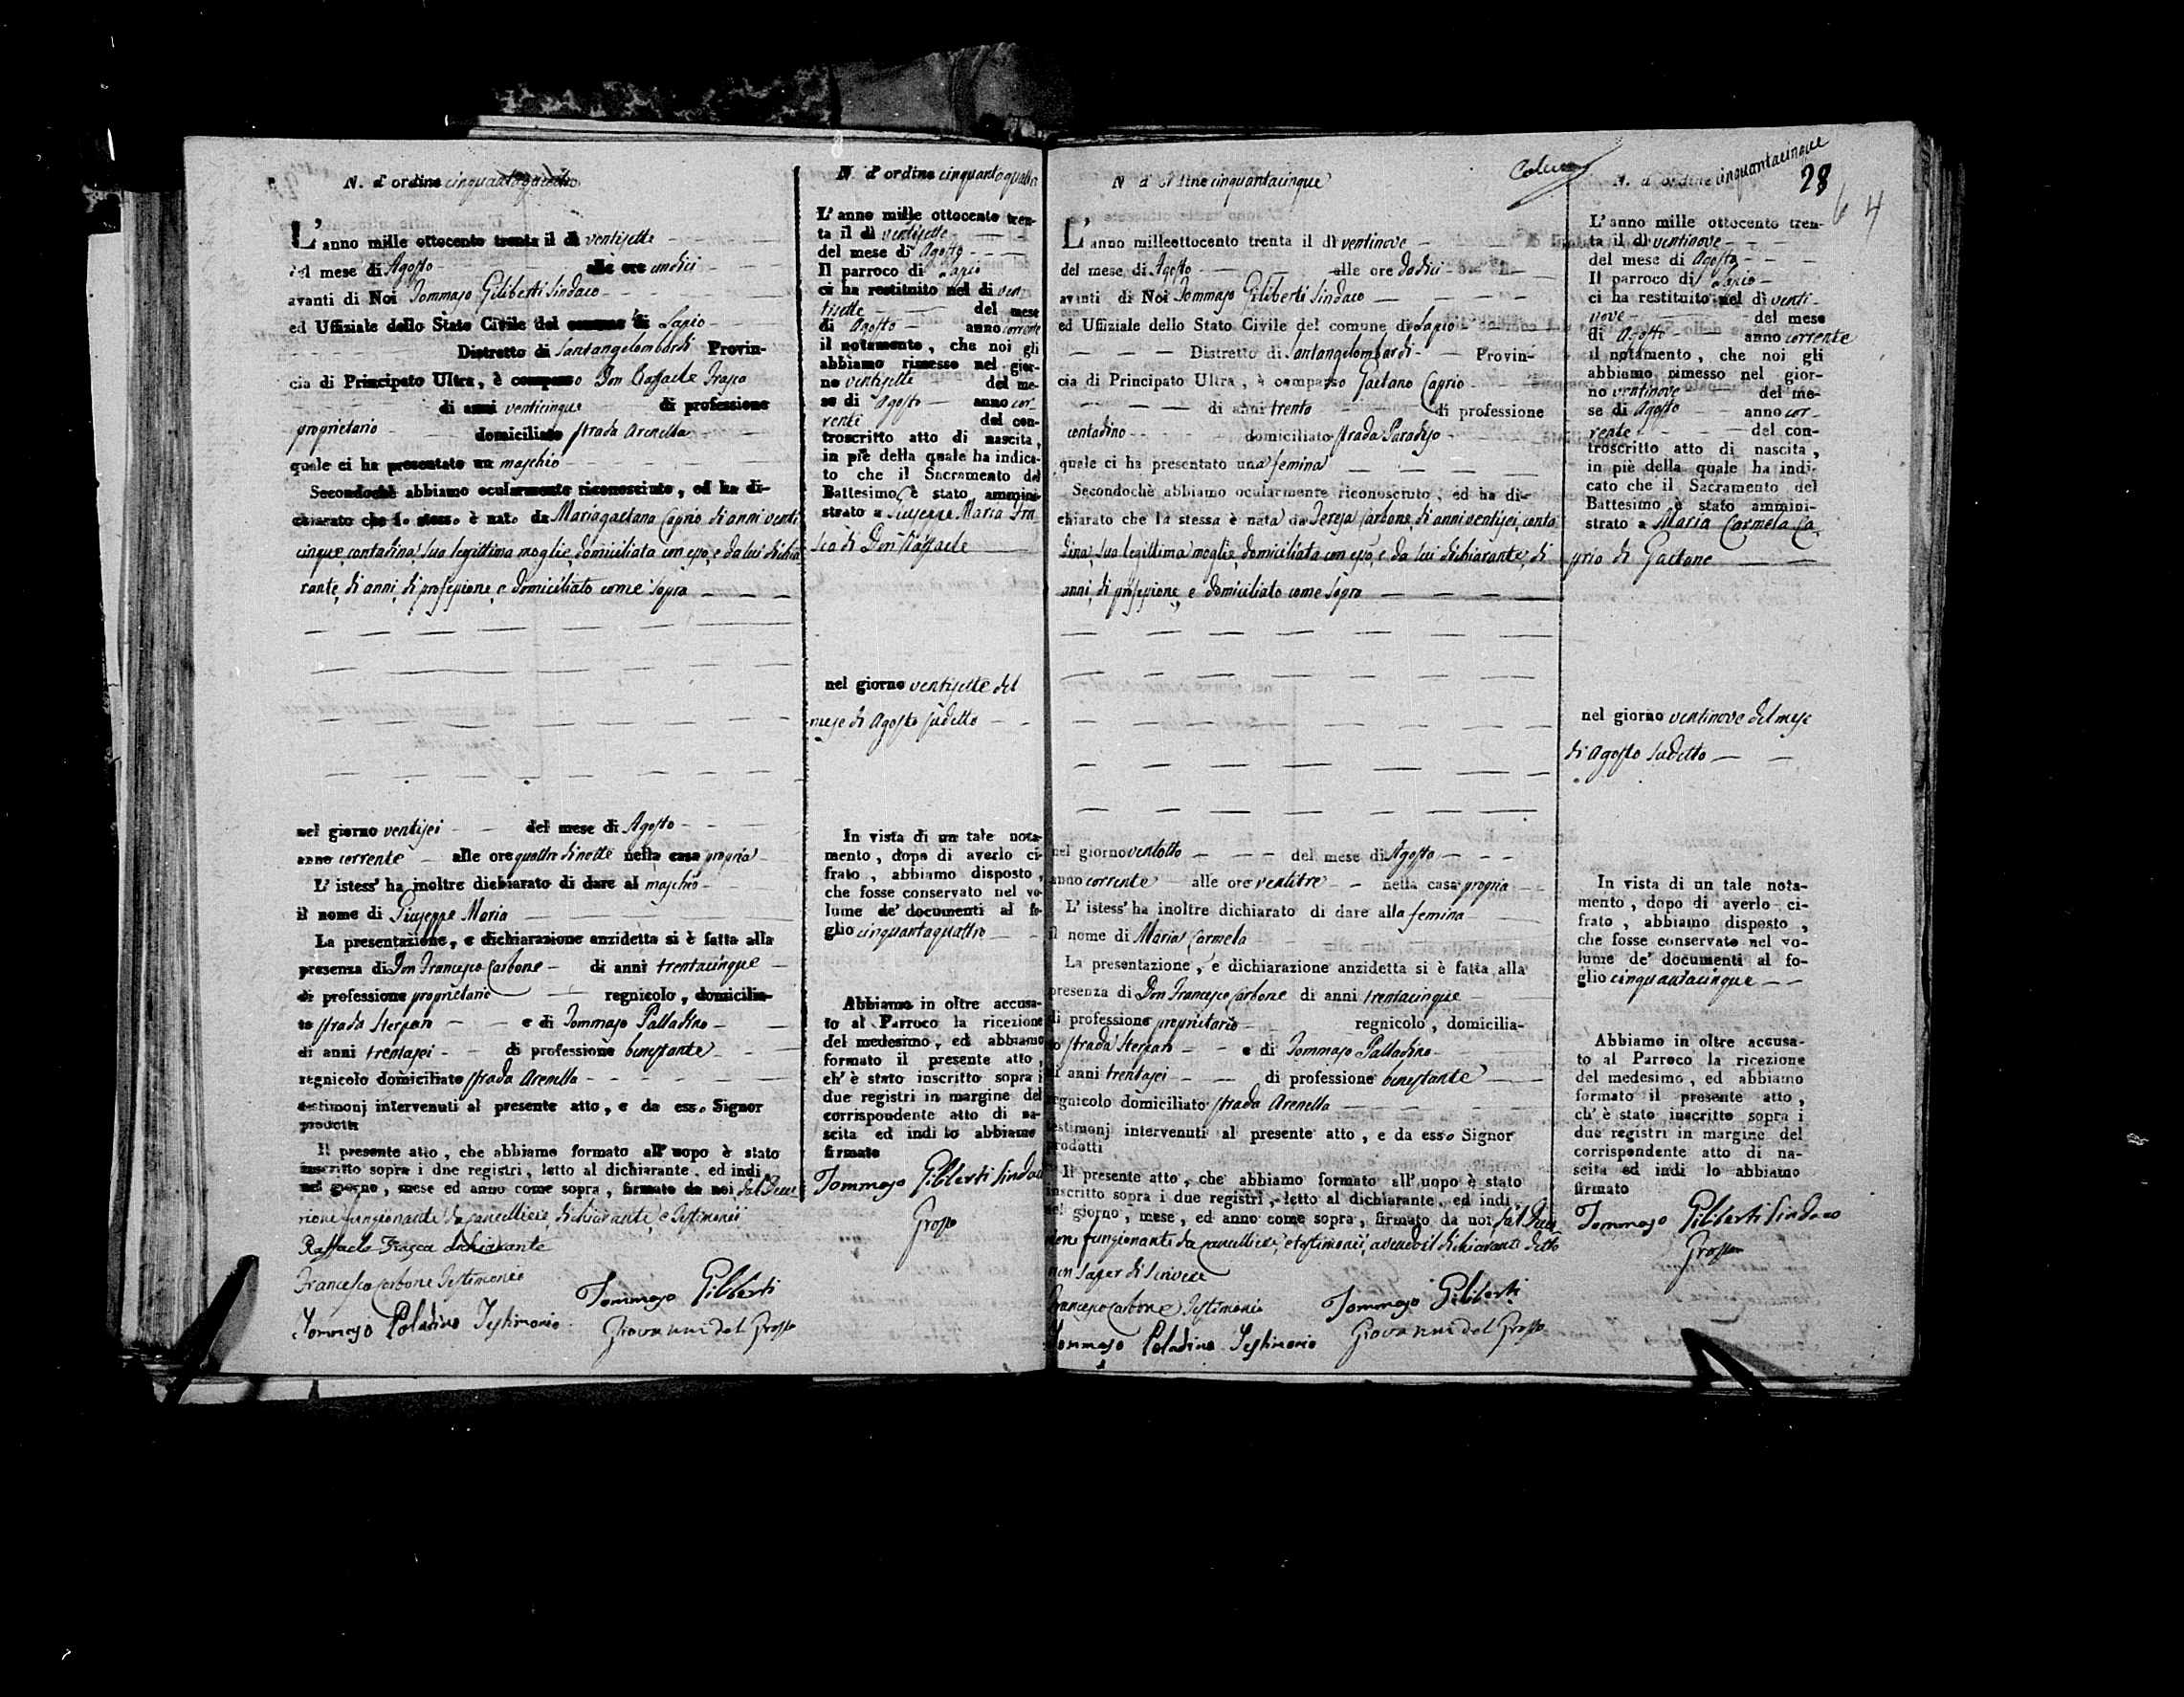 N. d' ordine cinquantaquattro
L' anno mille ottocento trenta il dì ventisette
del mese di Agosto alle ore undici
avanti di Noi Tommaso Giliberti Sindaco
ed Uffiziale dello Stato Civile del comune di Lapio
Distretto di Santangelombardi Provin-
cia di Principato Ultra, è comparso Don Raffaele Frasca
di anni venticinque di professione
proprietario domiciliato strada Arenella
quale ci ha presentato un maschio
Secondochè abbiamo ocularmente riconosciuto, ed ha di-
chiarato che lo stesso è nato da Mariagaetana Caprio di anni venti
cinque, contadina, sua legittima moglie, domiciliata con esso, e da lui dichia
rante, di anni, di professione, e domiciliato come sopra
nel giorno ventisei del mese di Agosto
anno corrente alle ore quattro di notte nella casa propria
L' istess' ha inoltre dichiarato di dare al maschio
il nome di Giuseppe Maria
La presentazione, e dichiarazione anzidetta si è fatta alla
presenza di Don Francesco Carbone di anni trentacinque
di professione proprietario regnicolo, domicilia-
to strada Sterpan e di Tommaso Palladino
di anni trentasei di professione benestante
regnicolo domiciliato strada Arenella
testimonj intervenuti al presente atto, e da esso Signor
prodotti
Il presente atto, che abbiamo formato all' uopo è stato
inscritto sopra i due registri, letto al dichiarante, ed indi
nel giorno, mese ed anno come sopra, firmato da noi, dal Decu
rione funzionante da Cancelliere, dichiarante, e Testimonii
Raffaele Frasca dichiarante
Francesco Carbone Testimonio
Tommaso Giliberti
Tommaso Paladino Testimonio
Giovanni del Grosso
N. d' ordine cinquantaquattro
L' anno mille ottocento tren-
ta il dì ventisette
del mese di Agosto
Il parroco di Lapio
ci ha restituito nel di ven
tisette del mese
di Agosto anno corrente
il notamento, che noi gli
abbiamo rimesso nel gior-
no ventisette del me-
se di Agosto anno cor-
rente del con-
troscritto atto di nascita,
in piè della quale ha indica-
to che il Sacramento del
Battesimo è stato ammini-
strato a Giuseppe Maria Fra
sca di Don Raffaele
nel giorno ventisette del
mese di Agosto sudetto
In vista di un tale nota-
mento, dopo di averlo ci-
frato, abbiamo disposto,
che fosse conservato nel vo-
lume de' documenti al fo-
glio cinquantaquattro
Abbiamo in oltre accusa-
to al Parroco la ricezione
del medesimo, ed abbiamo
formato il presente atto,
ch' è stato inscritto sopra i
due registri in margine del
corrispondente atto di na-
scita ed indi lo abbiamo
firmato
Tommaso Giliberti Sindaco
Grosso
N d' ordine cinquantacinque
L' anno milleottocento trenta il dì ventinove
del mese di Agosto alle ore dodici
avanti di Noi Tommaso Giliberti Sindaco
ed Uffiziale dello Stato Civile del comune di Lapio
Distretto di Santangelombardi Provin-
cia di Principato Ultra, è comparso Gaetano Caprio
di anni trenta di professione
contadino domiciliato strada Paradiso
quale ci ha presentato una femina
Secondochè abbiamo ocularmente riconosciuto, ed ha di-
chiarato che la stessa è nata da Teresa Carbone, di anni ventisei, conta
dina, sua legittima moglie, domiciliata con esso, e da lui dichiarante, di
anni, di professione, e domiciliato come sopra
nel giorno ventotto del mese di Agosto
anno corrente alle ore ventitre nella casa propria
L' istess' ha inoltre dichiarato di dare alla femina
il nome di Maria Carmela
La presentazione, e dichiarazione anzidetta si è fatta alla
presenza di Don Francesco Carbone di anni trentacinque
di professione proprietario regnicolo, domicilia-
to strada Sterpan e di Tommaso Palladino
di anni trentasei di professione benestante
regnicolo domiciliato strada Arenella
testimonj intervenuti al presente atto, e da esso Signor
prodotti
Il presente atto, che abbiamo formato all' uopo è stato
inscritto sopra i due registri, letto al dichiarante, ed indi
nel giorno, mese, ed anno come sopra, firmato da noi, dal Decu
rione funzionante da Cancelliere, e testimonii, avendo il dichiarante detto
non saper di scrivere
Francesco Carbone Testimonio
Tommaso Giliberti
Tommaso Paladino Testimonio
Giovanni del Grosso
N. d' ordine cinquantacinque
28
64
L' anno mille ottocento tren-
ta il dì ventinove
del mese di Agosto
Il parroco di Lapio
ci ha restituito nel di venti-
nove del mese
di Agosto anno corrente
il notamento, che noi gli
abbiamo rimesso nel gior-
no ventinove del me-
se di Agosto anno cor-
rente del con-
troscritto atto di nascita,
in piè della quale ha indi-
cato che il Sacramento del
Battesimo è stato ammini-
strato a Maria Carmela Ca-
prio di Gaetano
nel giorno ventinove del mese
di Agosto sudetto
In vista di un tale nota-
mento, dopo di averlo ci-
frato, abbiamo disposto,
che fosse conservato nel vo-
lume de' documenti al fo-
glio cinquantacinque
Abbiamo in oltre accusa-
to al Parroco la ricezione
del medesimo, ed abbiamo
formato il presente atto,
ch' è stato inscritto sopra i
due registri in margine del
corrispondente atto di na-
scita ed indi lo abbiamo
firmato
Tommaso Giliberti Sindaco
Grosso